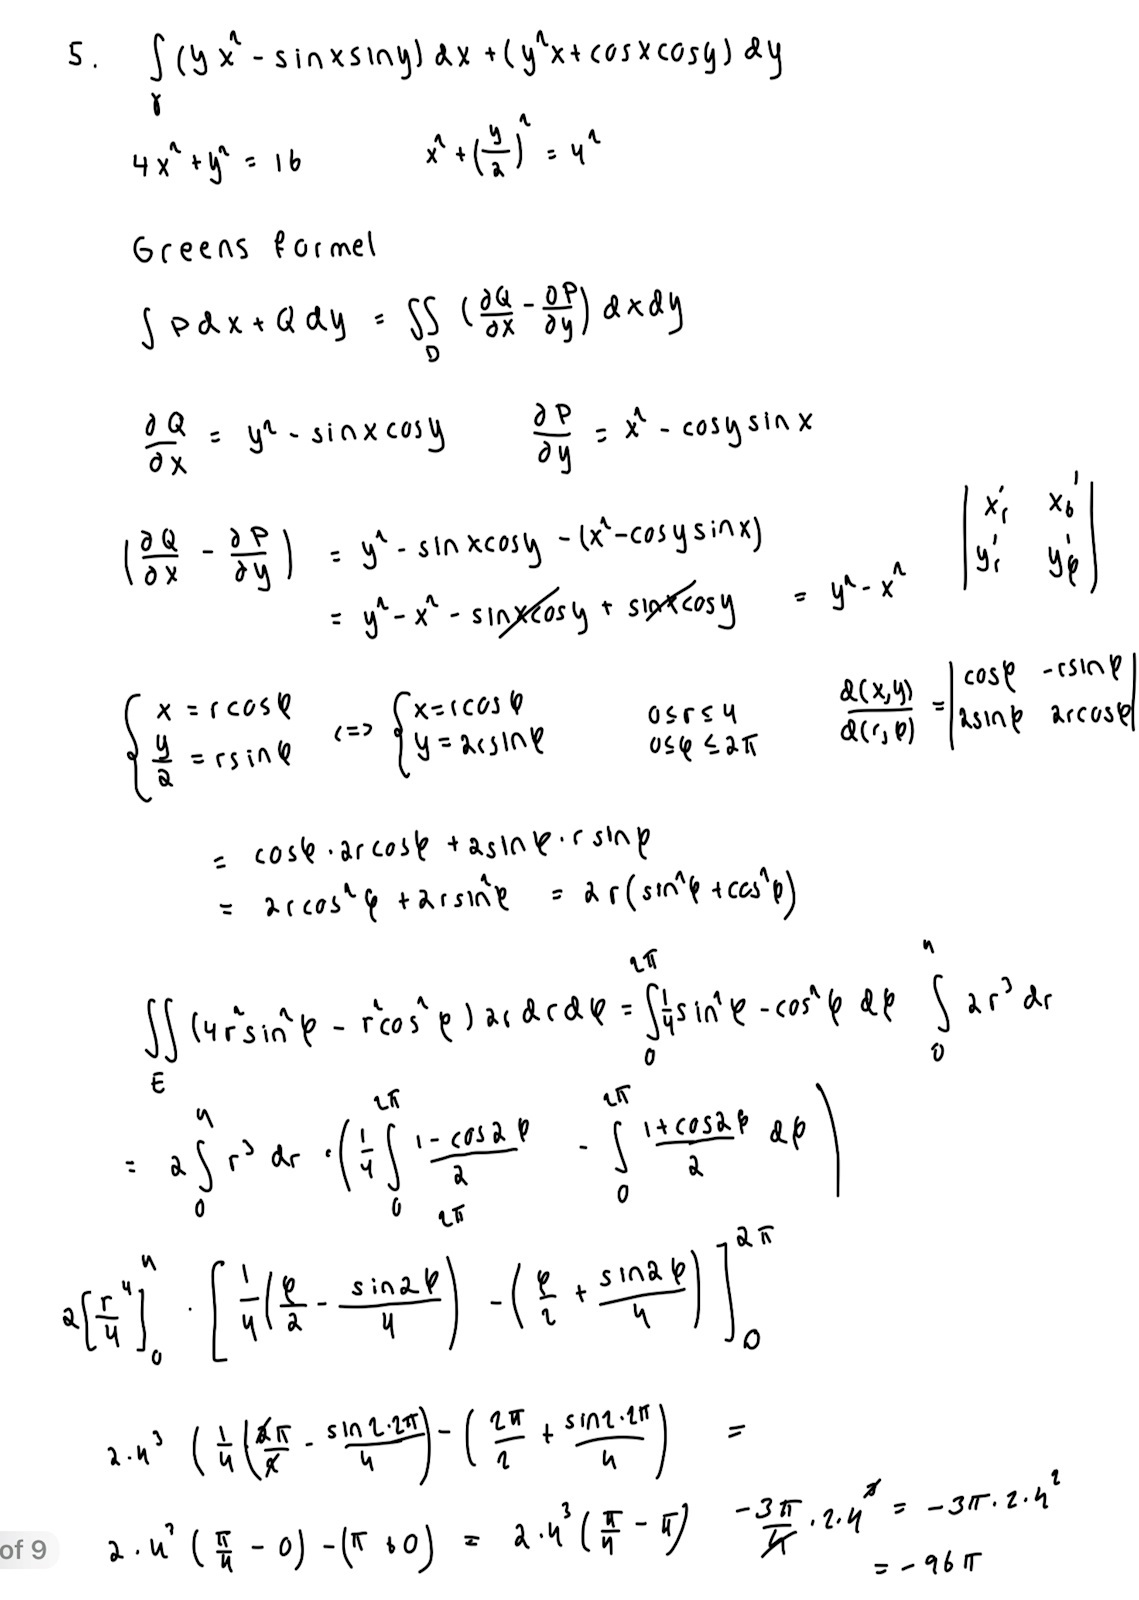 5. ∫γ (yx² - sinxsiny) dx + (y²x + cosxcosy) dy
4x² + y² = 16    x² + (y/2)² = 4²
Greens formel
∫ Pdx + Qdy = ∬D (∂Q/∂x - ∂P/∂y) dxdy
∂Q/∂x = y² - sinxcosy    ∂P/∂y = x² - cosysinx
(∂Q/∂x - ∂P/∂y) = y² - sinxcosy - (x² - cosysinx)    |x'r x'φ; y'r y'φ|
= y² - x² - sinxcosy + sinxcosy = y² - x²
{x = rcosφ; y/2 = rsinφ <=> {x = rcosφ; y = 2rsinφ    0≤r≤4    0≤φ≤2π    d(x,y)/d(r,φ) = |cosφ -rsinφ; 2sinφ 2rcosφ|
= cosφ · 2rcosφ + 2sinφ · rsinφ
= 2rcos²φ + 2rsin²φ = 2r(sin²φ + cos²φ)
∬E (4r²sin²φ - r²cos²φ) 2r dr dφ = ∫₀^2π 1/4 sin²φ - cos²φ dφ ∫₀^4 2r³ dr
= 2 ∫₀^4 r³ dr · (1/4 ∫₀^2π (1 - cos2φ)/2 - ∫₀^2π (1 + cos2φ)/2 dφ)
2π
2[r⁴/4]₀^4 · [1/4 (φ/2 - sin2φ/4) - (φ/2 + sin2φ/4)]₀^2π
2·4³ (1/4 (2π/2 - sin2·2π/4) - (2π/2 + sin2·2π/4) =
2·4³ (π/4 - 0) - (π + 0) = 2·4³ (π/4 - π)    -3π/4 · 2·4³ = -3π·2·4²
= -96π
of 9